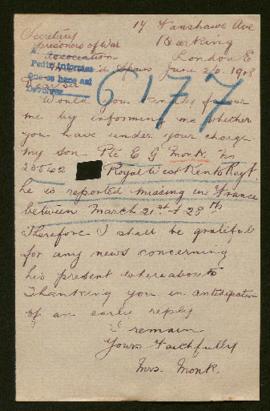 17 Fanshawe Ave
Secretary Barking
Prisoners of War London E
Association
June 20 1918
Dear Sir
6177
Would you kindly favour
me by informing me whether
you have under your charge
my son Pte E G Monk No
Royal West Kents Regt
he is reported missing in France
between March 21st & 28th
Therefore I shall be grateful
for any news concerning
his present whereabouts
Thanking you in anticipation
of an early reply
I remain
Yours Faithfully
Mrs. Monk.